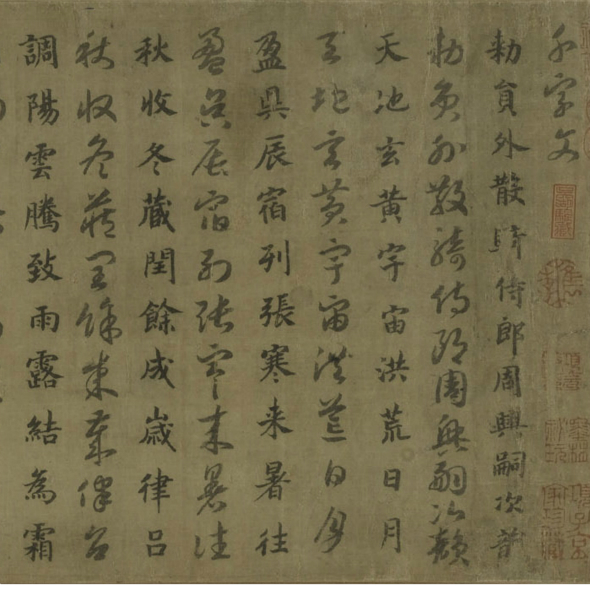 千字文
勅員外散騎侍郎周興嗣次韵
勅員外散騎侍郎周興嗣次韻
天地玄黄宇宙洪荒日月
天地玄黄宇宙洪荒日月
盈昃辰宿列張寒来暑往
盈昃辰宿列張寒来暑往
秋收冬藏閏餘成歲律呂
秋收冬藏閏餘成歲律呂
調陽雲騰致雨露結為霜